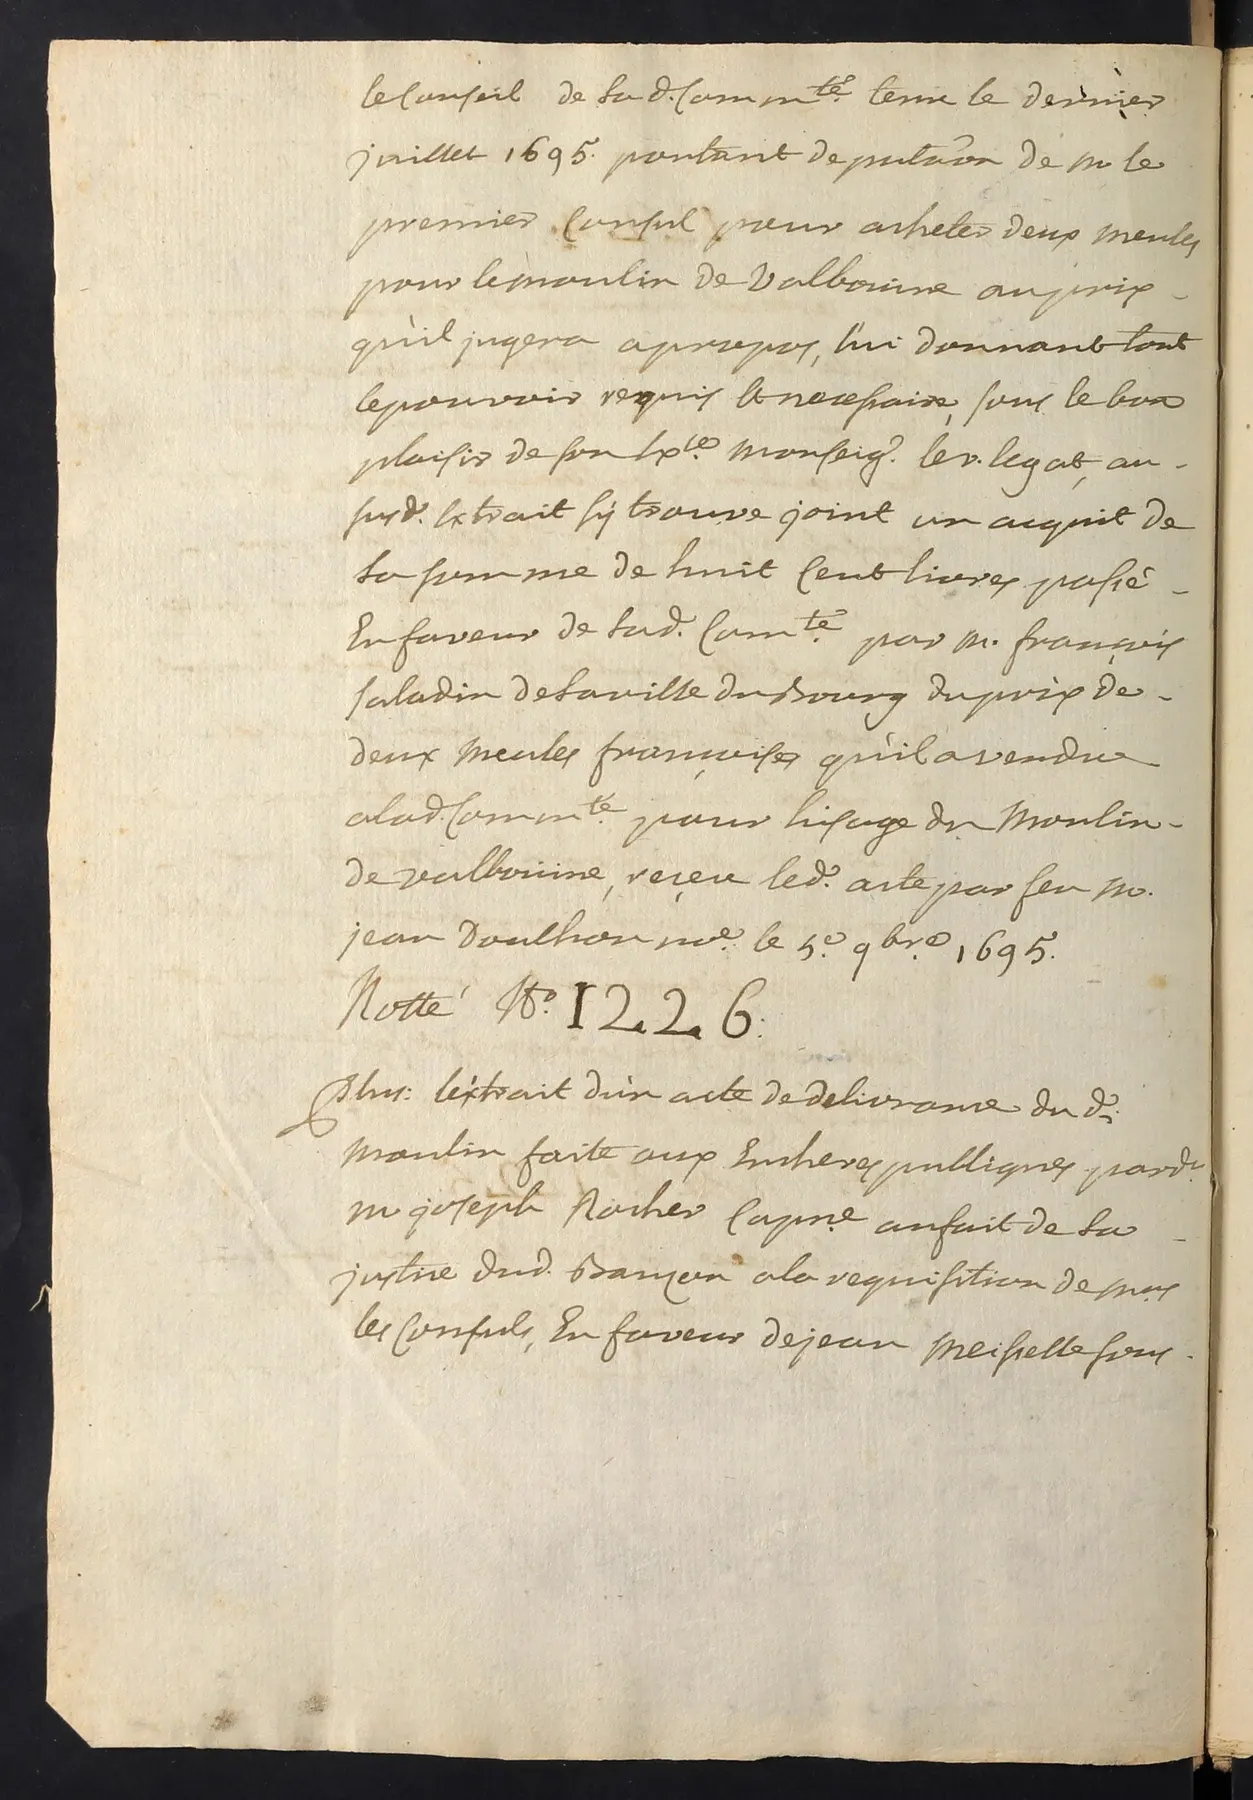 le Conseil de la d. Comm^té. tenu le dernier
juillet 1695. portant deputâon de m le
premier Consul pour acheter deux meules
pour le moulin de Valbonne au prix -
qu'il jugera a propos, lui donnant tout
le pouvoir requis et necessaire, sous le bon
plaisir de son Ex^ce. monseig^r. le v. legat, au -
susd^t. extrait sy trouve joint un acquit de
la somme de huit Cent livres passé -
En faveur de lad. Com^té. par m. françois
saladin de la ville du Bourg du prix de -
deux meules françoises qu'il a vendu
a lad. Comm^té. pour l'usage du Moulin -
de valbonne, reçeu led^t. acte par feu m.
jean Doulhon no^e. le 5^e. 9^bre. 1695.
Notté N^o. 1226.
Plus: l'extrait d'un acte de delivrance du d^t.
moulin faite aux Encheres publiques par d^t.
m joseph Rocher Cap^ne. au fait de la -
justice dud. a la requisition de m^rs
les Consuls, En faveur de jean sous -